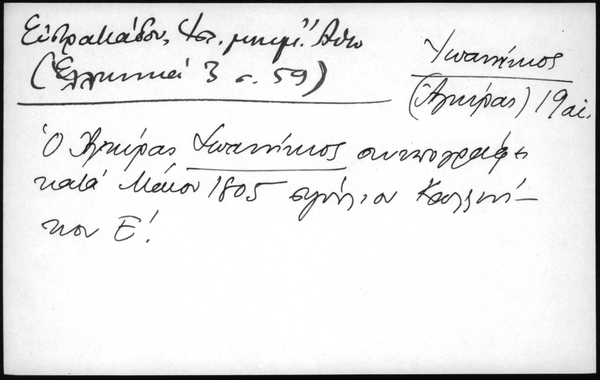 Εὐστρατιάδου, Ἱστ. μνημ. Ἄθω
(Ἑλληνικά 3 σ. 59)
Ἰωαννίκιος
(Ἀγκύρας) 19 αἰ.
Ὁ Ἀγκύρας Ἰωαννίκιος συνυπογράφει
κατά Μάιον 1805 σιγίλιον Καλλινί–
κου Ε΄.